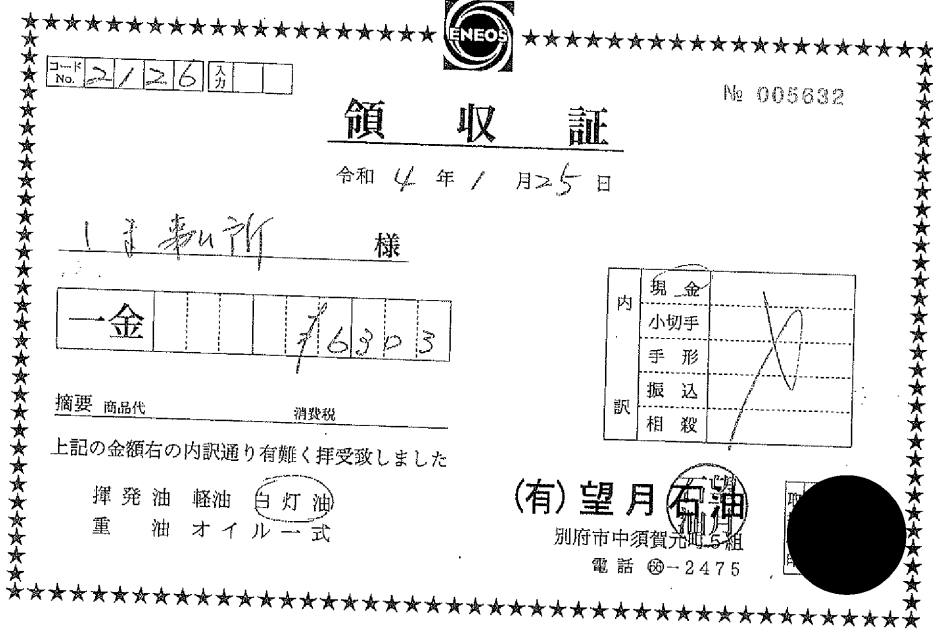 ENEOS
コードNo. 2126 入力
№ 005632
領収証
令和4年1月25日
様
一金 ¥6303
内訳
現金
小切手
手形
振込
相殺
摘要 商品代 消費税
上記の金額右の内訳通り有難く拝受致しました
揮発油 軽油 白灯油
重油 オイル一式
(有)望月石油
別府市中須賀元町5組
電話 ㊅-2475